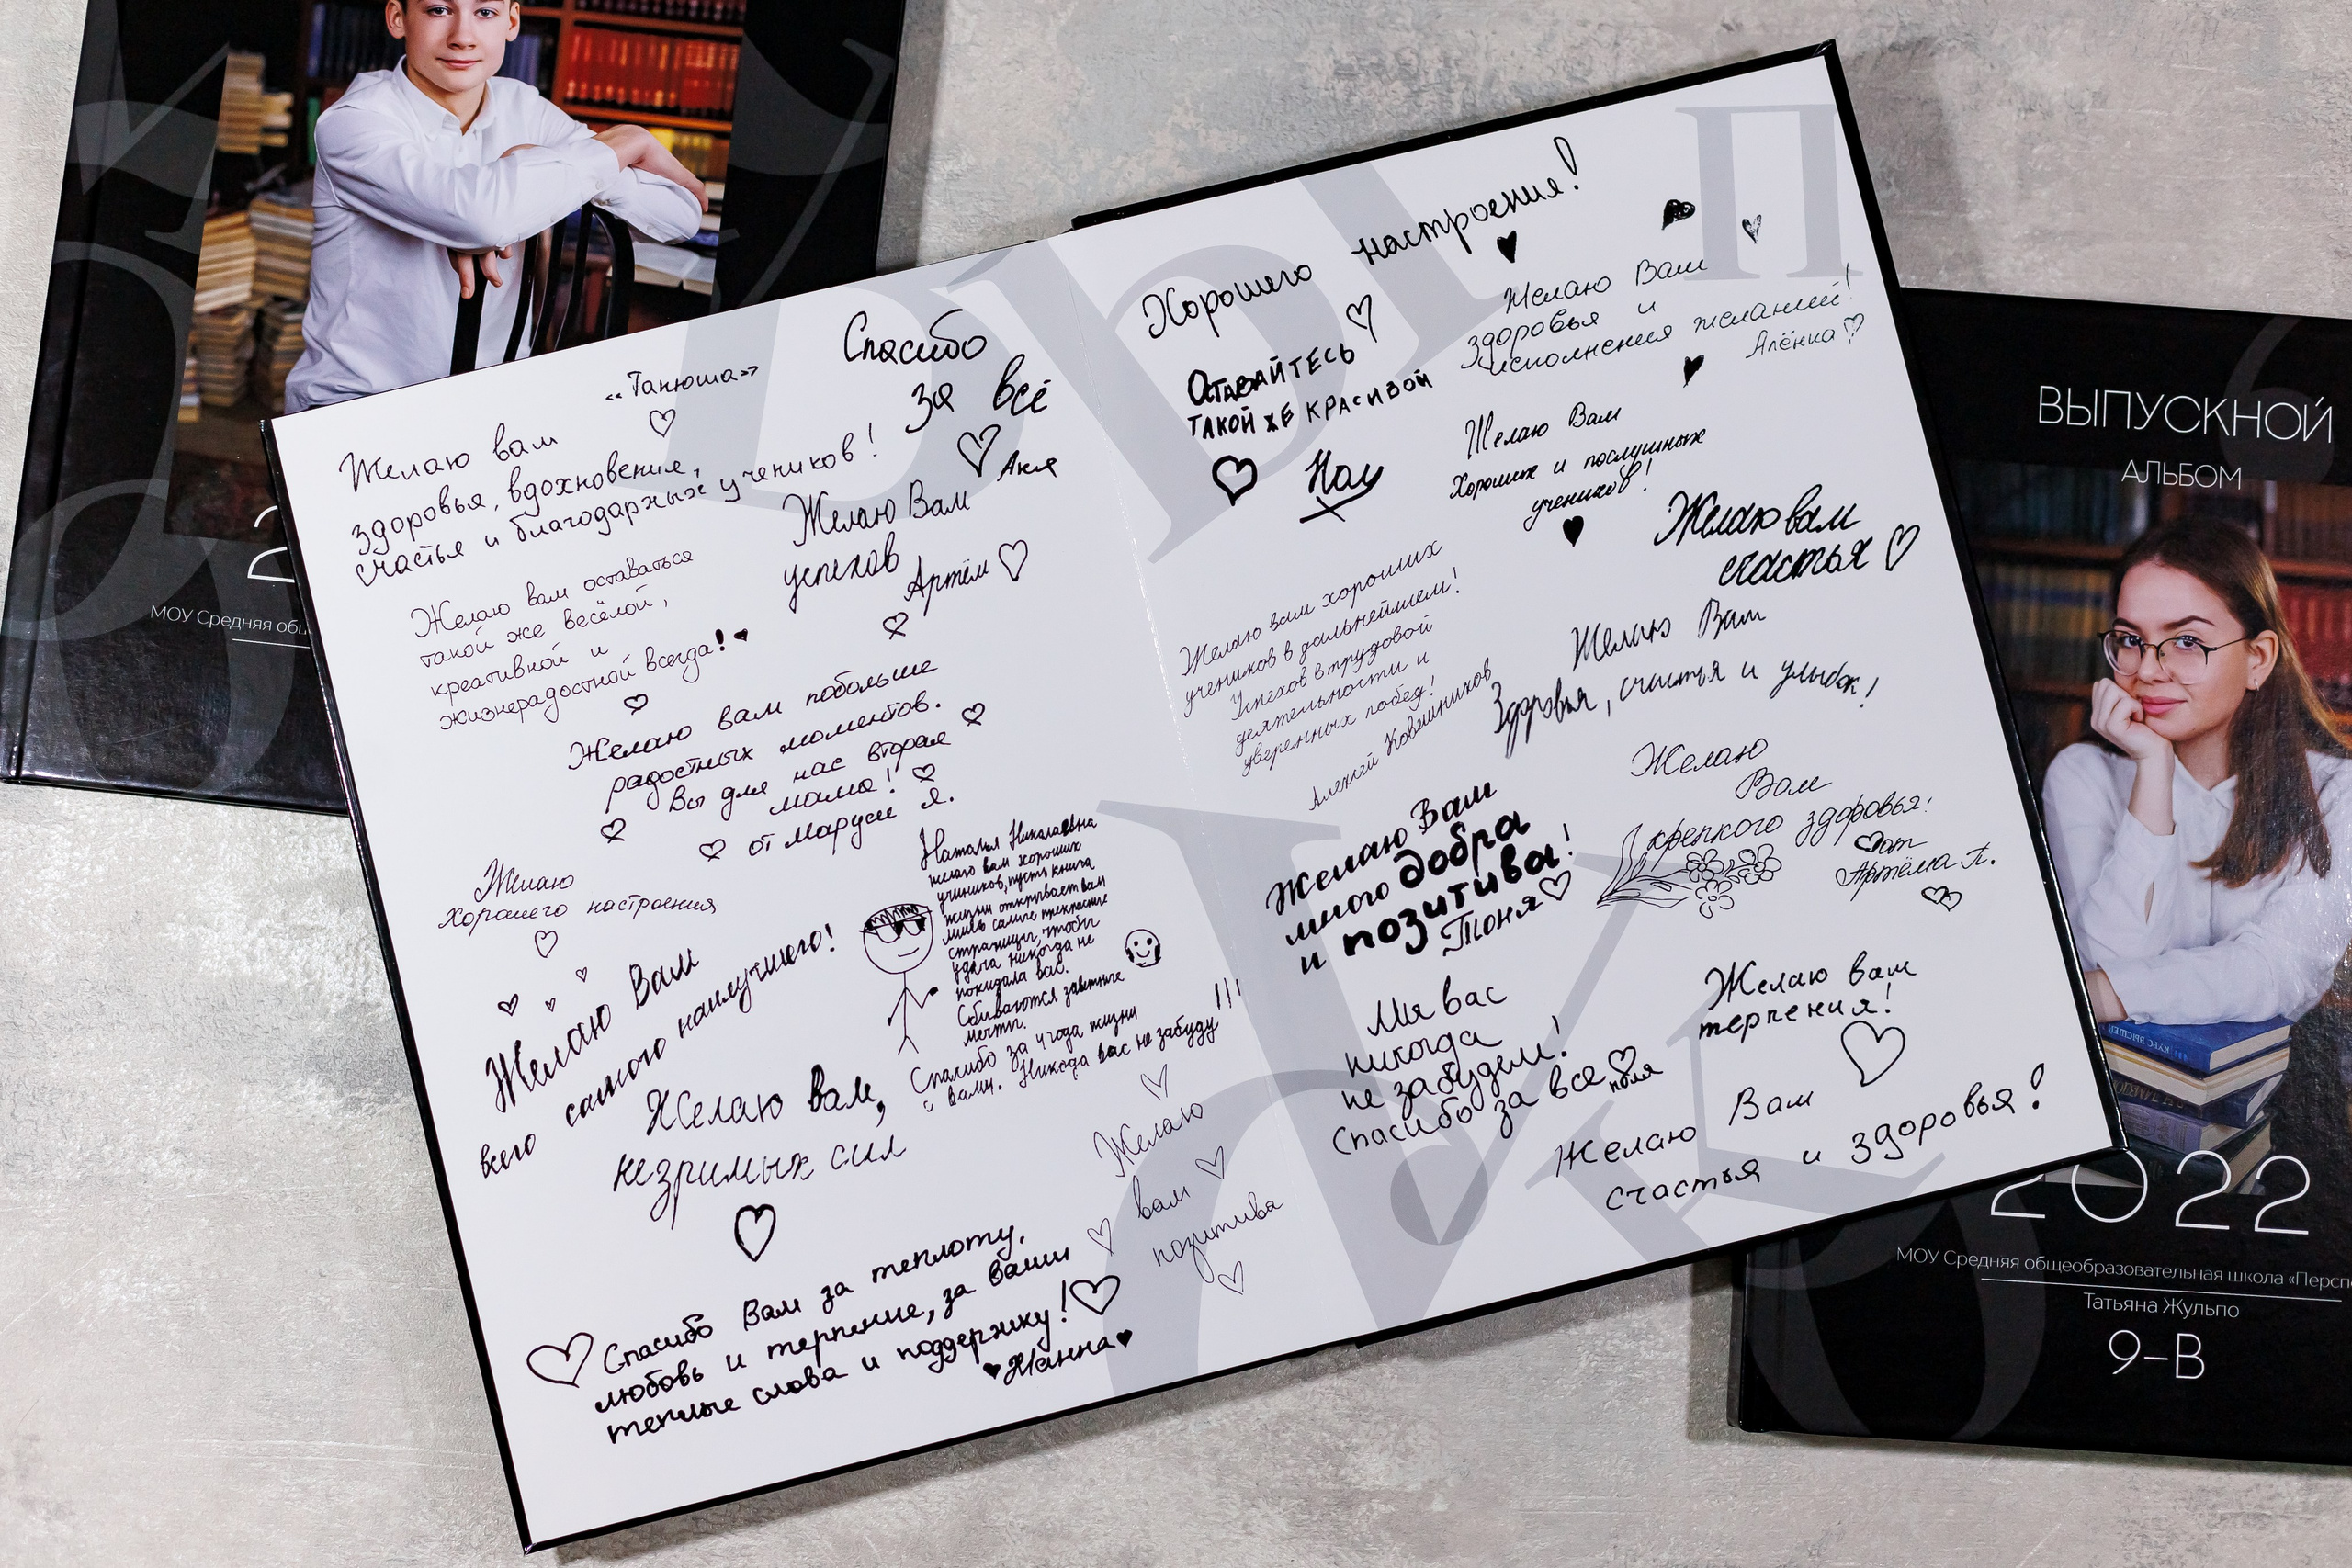 «Танюша»
Желаю вам
здоровья, вдохновения,
счастья и благодарных учеников!
Спасибо
за всё
Аня
Желаю Вам
успехов
Артём
Желаю вам оставаться
такой же весёлой,
креативной и
жизнерадостной всегда!
Желаю вам побольше
радостных моментов.
Вы для нас вторая
мама!
от Маруси Я.
Желаю
хорошего настроения
Желаю Вам
всего самого наилучшего!
Наталья Николаевна
желаю вам хороших
учиников, пусть книга
жизни открывает вам
лишь самые прекрасные
страницы, чтобы
удача никогда не
покидала вас.
Сбиваются заветные
мечты.
Спасибо за 4 года жизни
с вами. Никода вас не забуду!!!
Желаю вам,
незримых сил
Желаю
вам
позитива
Спасибо Вам за теплоту,
любовь и терпение, за ваши
теплые слова и поддержку!
Жанна
Хорошего настроения!
Оставайтесь
такой же красивой
Желаю Вам
здоровья и
исполнения желаний!
Алёнка
Желаю Вам
Хороших и послушных
учеников!
Желаю вам
счастья
Желаю вам хороших
учеников в дальнейшем!
Успехов в трудовой
деятельности и
уверенных побед!
Алексей Ковшиников
Желаю Вам
Здоровья, счастья и улыбок!
Желаю
Вам
крепкого здоровья!
от
Артёма П.
Желаю Вам
много добра
и позитива!
Тоня
Мы вас
никогда
не забудем!
Спасибо за все
поля
Желаю вам
терпения!
Желаю Вам
счастья и здоровья!
2
МОУ Средняя общ
ВЫПУСКНОЙ
АЛЬБОМ
2022
МОУ Средняя общеобразовательная школа «Перспе
Татьяна Жульпо
9-В